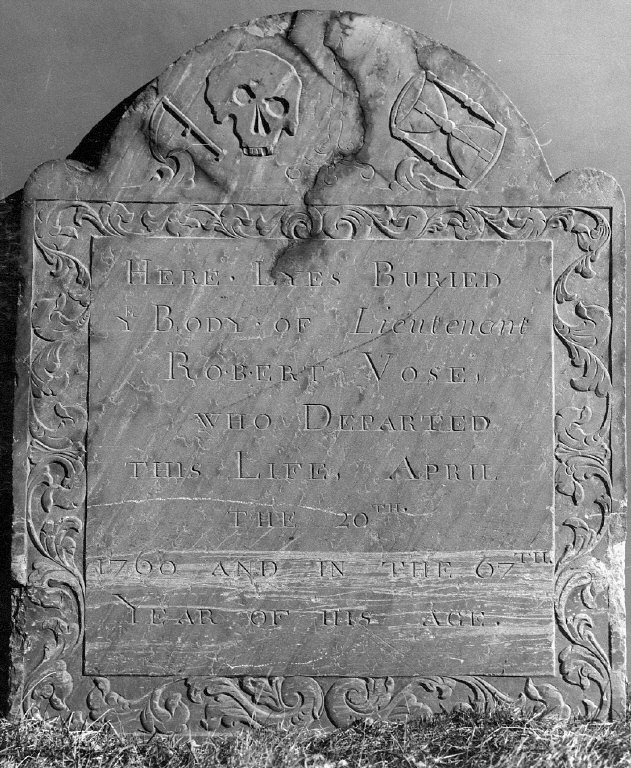 HERE · LYES BURIED
Y BODY · OF Lieutenant
ROBERT VOSE,
WHO DEPARTED
THIS LIFE, APRIL
THE 20TH.
1760 AND IN THE 67TH.
YEAR OF HIS AGE.